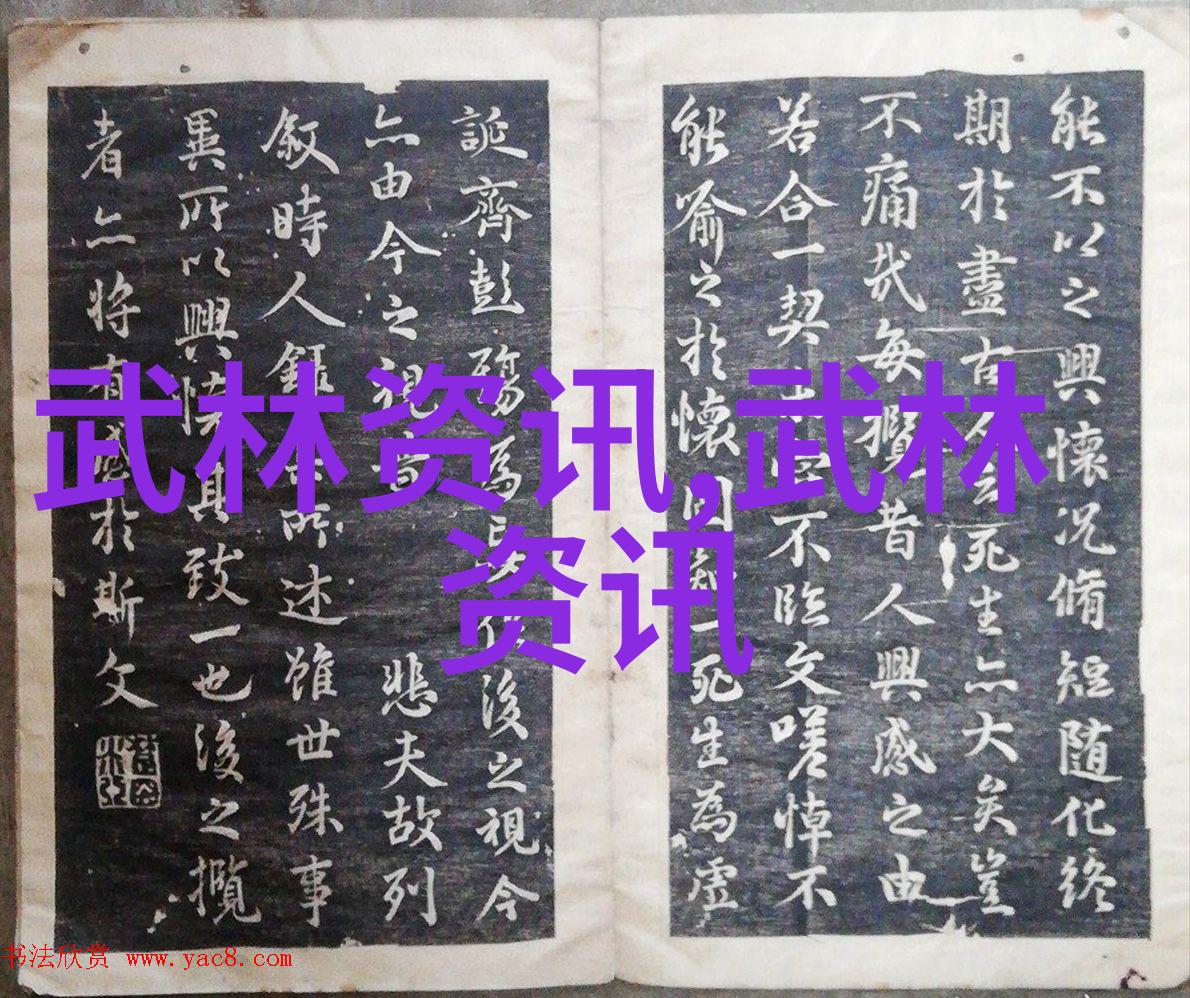 能不以之興懷況脩短随化終
期於盡古人云死生亦大矣豈
不痛哉每攬昔人興感之由
若合一契不臨文嗟悼不
能喻之於懷固知一死生為虛
誕齊彭殤為後之視今
亦由今之視昔悲夫故列
敘時人錄其所述雖世殊事
異所以興懷其致一也後之攬
者亦將有感於斯文
武林资讯,武林
资讯
书法欣赏 www.yac8.com